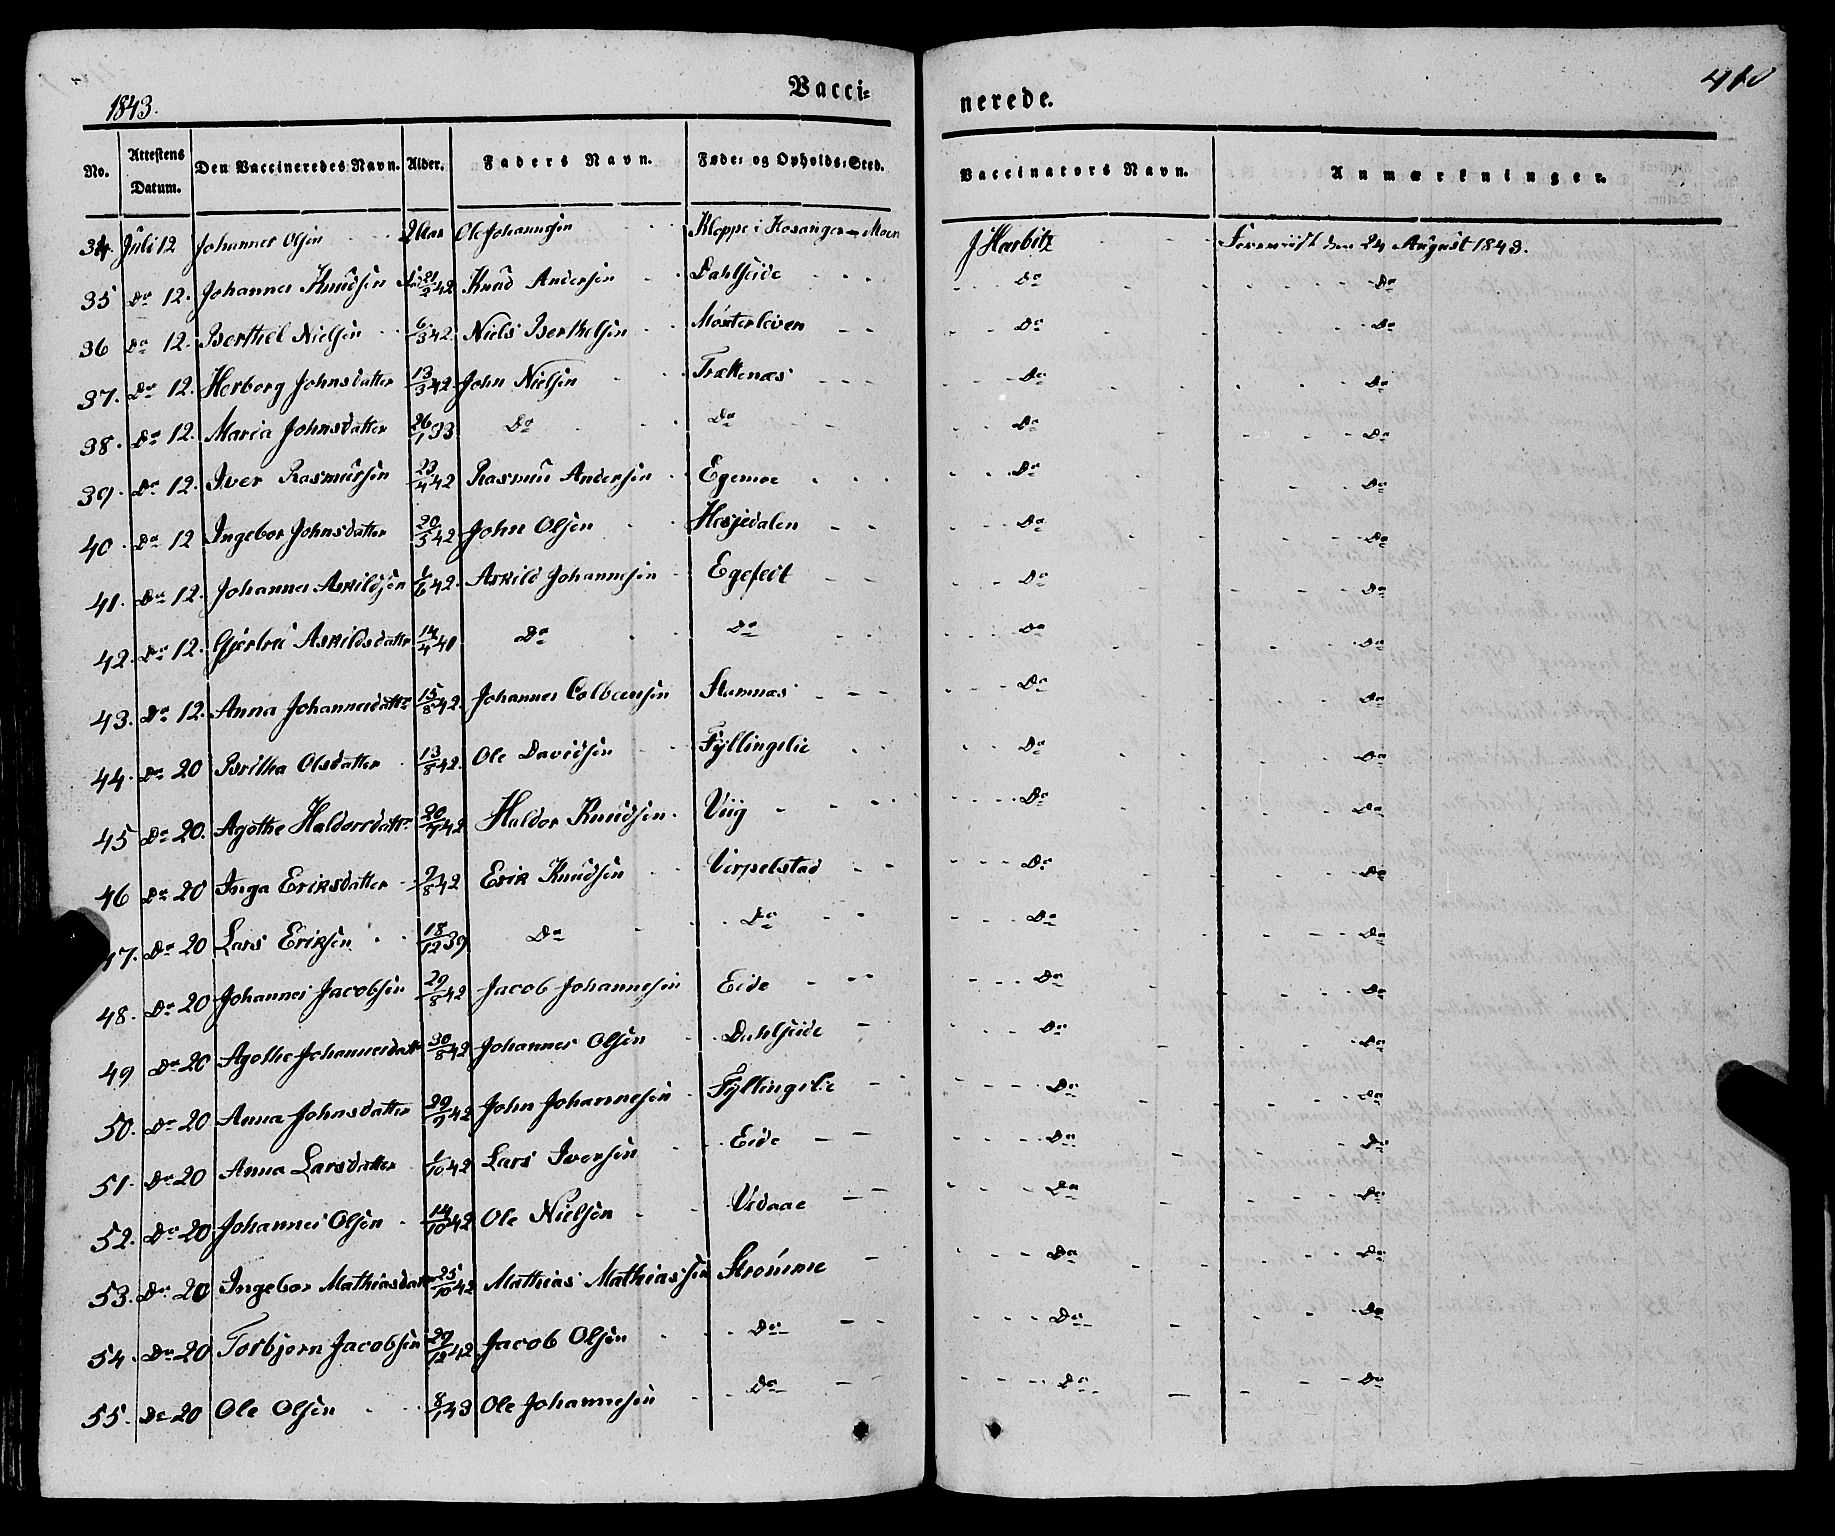 1843.
Vacci=
nerede.
410
No. Attestens Datum. Den Vaccineredes Navn. Alder. Faders Navn. Føde= og Opholds=Sted. Vaccinators Navn. Anmærkninger.
34 Juli 12 Johannes Olsen 2 Aar Ole Johannesen Kleppe i Hosanger - Moen J Harbitz Foreviist den 24 August 1843.
35 Do 12. Johannes Knudsen 21/2 42 Knud Andersen Dahlseide Do Do
36 Do 12. Berthel Nielsen 6/3 42. Niels Berthelsen Mosterleven Do Do
37. Do 12. Herborg Johnsdatter 13/3 42. John Nielsen Trættenæs Do Do
38. Do 12. Maria Johnsdatter 26/1 33 Do Do Do Do
39. Do 12. Iver Rasmussen 23/4 42 Rasmus Andersen Egemoe Do Do
40. Do 12 Ingebor Johnsdatter 20/5 42 John Olsen Hesjedalen Do Do
41. Do 12. Johannes Askildsen 1/6 42. Askild Johannesen Egeseit Do Do
42. Do 12. Gjertru Askildsdattr 14/4 40 Do Do Do Do
43. Do 12. Anna Johannesdattr 15/8 42. Johannes Colbensen Stamnæs Do Do
44. Do 20 Britha Olsdatter 13/8 42. Ole Davidsen Fyllingslie Do Do
45 Do 20. Agothe Haldorsdattr 20/7 42 Haldor Knudsen. Viig Do Do
46 Do 20 Inga Eriksdatter 9/8 42 Erik Knudsen Virpelstad Do Do
47. Do 20 Lars Eriksen 18/12 39. Do Do Do Do
48. Do 20 Johannes Jacobsen 29/8 42 Jacob Johannesen Eide Do Do
49 Do 20 Agothe Johannesdatt 30/8 42 Johannes Olsen Dahlseide Do Do
50. Do 20 Anna Johnsdatter 29/9 42 John Johannesen Fyllingslie Do Do
51. Do 20 Anna Larsdatter 1/10 42 Lars Iversen Eide Do Do
52. Do 20 Johannes Olsen 14/10 42 Ole Nielsen Vedaae Do Do
53. Do 20 Ingebor Mathiasdatter 25/10 42 Mathias Mathiassen Strømme Do Do
54. Do 20 Torbjørn Jacobsen 29/12 42 Jacob Olsen Do Do Do
55. Do 20 Ole Olsen 8/1 43 Ole Johannesen Do Do Do